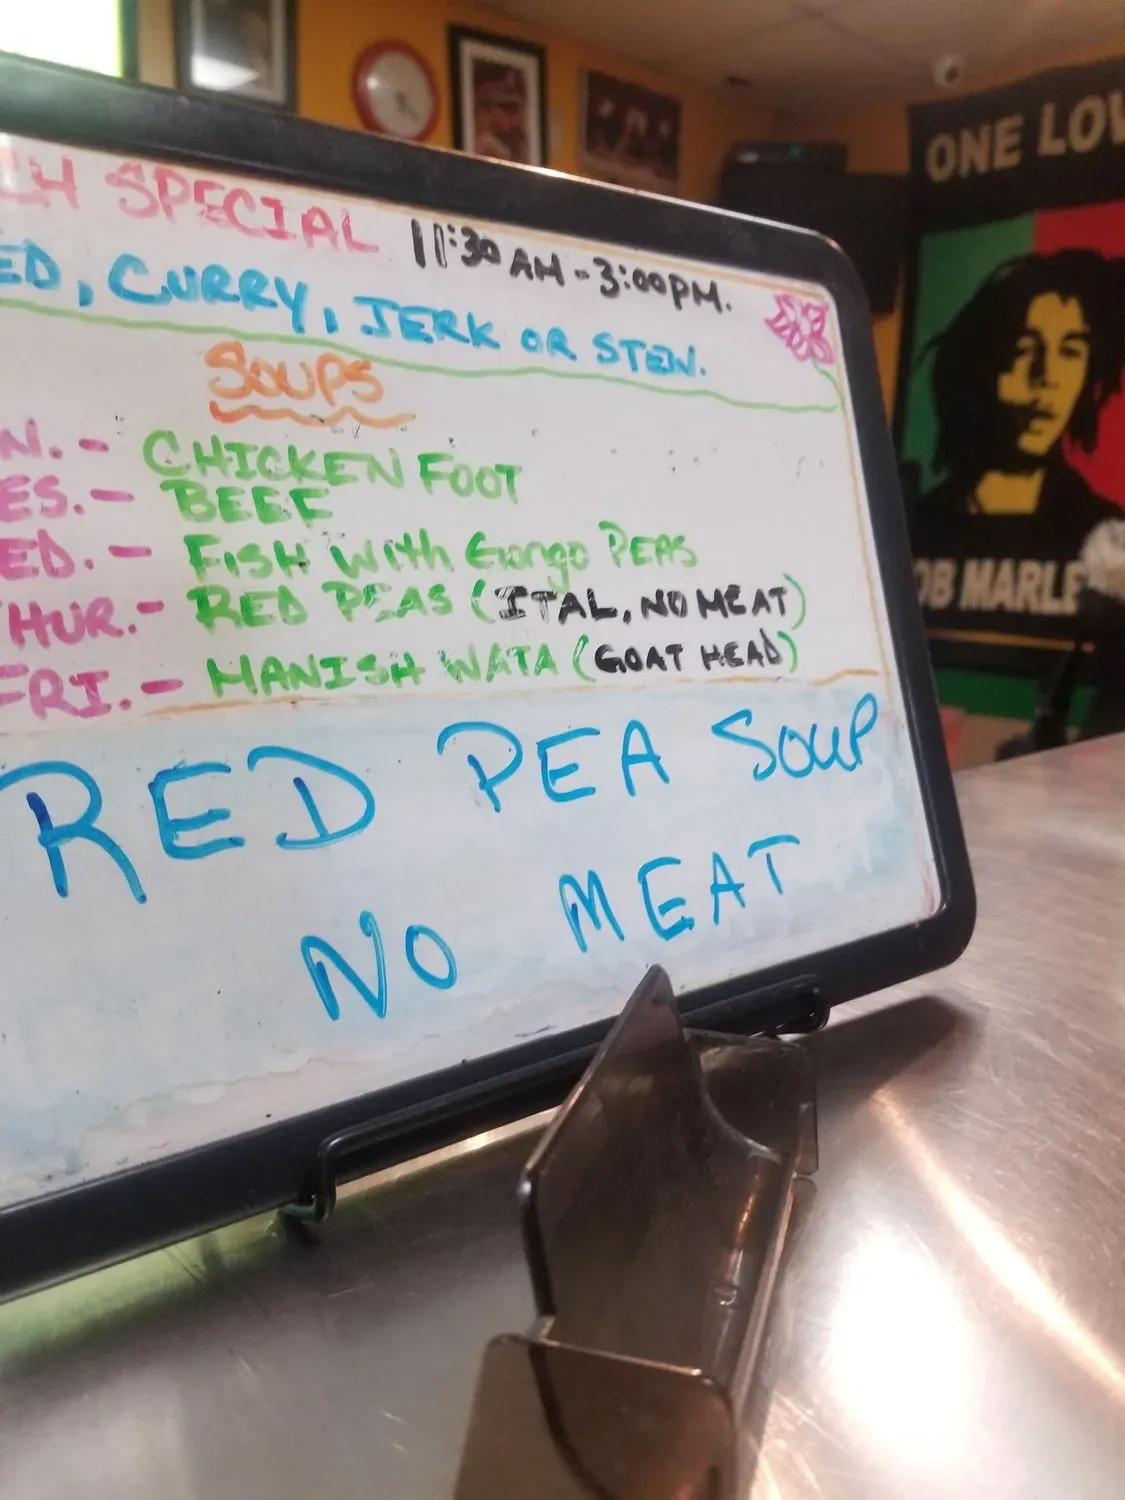 CH SPECIAL 11:30 AM - 3:00PM.
ED, CURRY, JERK OR STEW.
SOUPS
N. - CHICKEN FOOT
ES. - BEEF
ED. - FISH WITH Gongo PEAS
HUR. - RED PEAS (ITAL, NO MEAT)
FRI. - MANISH WATA (GOAT HEAD)
RED PEA SOUP
NO MEAT
ONE LOV
OB MARLE